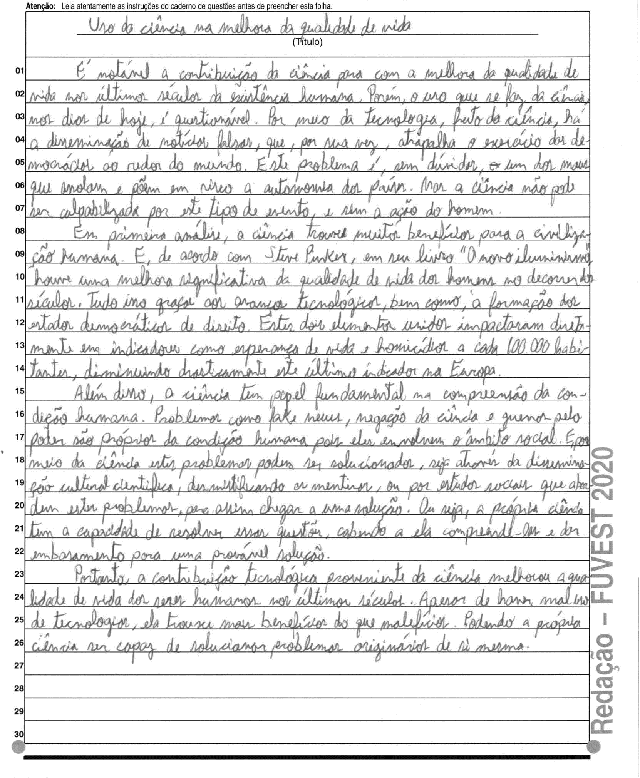 Atenção: Leia atentamente as instruções do caderno de questões antes de preencher esta folha.
Uso da ciência na melhora da qualidade de vida
(Título)
01 É notável a contribuição da ciência para com a melhora da qualidade de
02 vida nos últimos séculos da existência humana. Porém, o uso que se faz da ciência,
03 nos dias de hoje, é questionável. Por meio da tecnologia, fruto da ciência, há
04 a disseminação de notícias falsas, que, por sua vez, atrapalha o exercício das de-
05 mocracias ao redor do mundo. Este problema é, sem dúvidas, um dos males
06 que assolam e põem em risco a autonomia dos países. Mas a ciência não pode
07 ser culpabilizada por este tipo de evento, e sim a ação do homem.
08 Em primeira análise, a ciência trouxe muitos benefícios para a civiliza-
09 ção humana. E, de acordo com Steve Pinker, em seu livro "O novo iluminismo",
10 houve uma melhora significativa da qualidade de vida dos homens no decorrer dos
11 séculos. Tudo isso graças aos avanços tecnológicos, bem como, a formação dos
12 estados democráticos de direito. Estes dois elementos unidos impactaram direta-
13 mente em indicadores como esperança de vida e homicídios a cada 100.000 habi-
14 tantes, diminuindo drasticamente este último indicador na Europa.
15 Além disso, a ciência tem papel fundamental na compreensão da con-
16 dição humana. Problemas como fake news, negação da ciência e guerras pelo
17 poder são próprios da condição humana pois eles envolvem o âmbito social. E por
18 meio da ciência estes problemas podem ser solucionados, seja através da dissemina-
19 ção cultural científica, desmistificando as mentiras, ou por estudos sociais que abor-
20 dem estes problemas, para assim chegar a uma solução. Ou seja, a própria ciência
21 tem a capacidade de resolver essas questões, cabendo a ela compreendê-las e dar
22 embasamento para uma provável solução.
23 Portanto, a contribuição tecnológica proveniente da ciência melhorou a qua-
24 lidade de vida dos seres humanos nos últimos séculos. Apesar de haver mal uso
25 de tecnologias, ela trouxe mais benefícios do que malefícios. Podendo a própria
26 ciência ser capaz de solucionar problemas originários de si mesma.
27
28
29
30
Redação – FUVEST 2020